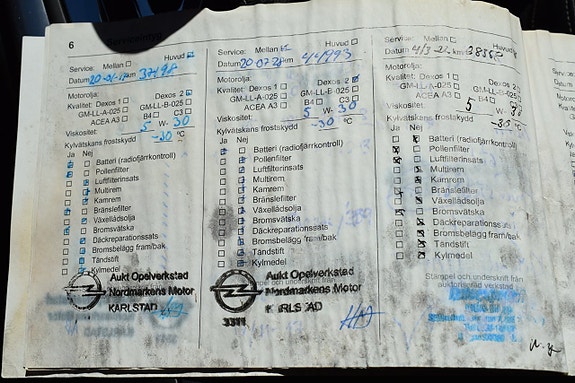 6
Service: Mellan ☐ Huvud ☑
Datum 20-01-17 km 37198
Motorolja:
Kvalitet: Dexos 1 ☐ Dexos 2 ☑
GM-LL-A-025 ☐ GM-LL-B-025 ☐
ACEA A3 ☐ B4 ☐ C3 ☐
Viskositet: 5 W- 30
Kylvätskans frostskydd -30 °C
Ja Nej
Batteri (radiofjärrkontroll)
Pollenfilter
Luftfilterinsats
Multirem
Kamrem
Bränslefilter
Växellådsolja
Bromsvätska
Däckreparationssats
Bromsbelägg fram/bak
Tändstift
Kylmedel
Aukt Opelverkstad
Nordmarkens Motor
KARLSTAD
Service: Mellan ☑ Huvud ☐
Datum 20-07-28 km 44993
Motorolja:
Kvalitet: Dexos 1 ☐ Dexos 2 ☑
GM-LL-A-025 ☐ GM-LL-B-025 ☐
ACEA A3 ☐ B4 ☐ C3 ☐
Viskositet: 5 W- 30
Kylvätskans frostskydd -30 °C
Ja Nej
Batteri (radiofjärrkontroll)
Pollenfilter
Luftfilterinsats
Multirem
Kamrem
Bränslefilter
Växellådsolja
Bromsvätska
Däckreparationssats
Bromsbelägg fram/bak
Tändstift
Kylmedel
Aukt Opelverkstad
Nordmarkens Motor
KARLSTAD
3311
Service: Mellan ☐ Huvud
Datum 4/3-22 km
Motorolja:
Kvalitet: Dexos 1 ☐ Dexos 2
GM-LL-A-025 ☐ GM-LL-B-025 ☐
ACEA A3 ☐ B4 ☐ C3 ☐
Viskositet: 5 W-
Kylvätskans frostskydd °C
Ja Nej
Batteri (radiofjärrkontroll)
Pollenfilter
Luftfilterinsats
Multirem
Kamrem
Bränslefilter
Växellådsolja
Bromsvätska
Däckreparationssats
Bromsbelägg fram/bak
Tändstift
Kylmedel
Stämpel och underskrift från
auktoriserad verkstad